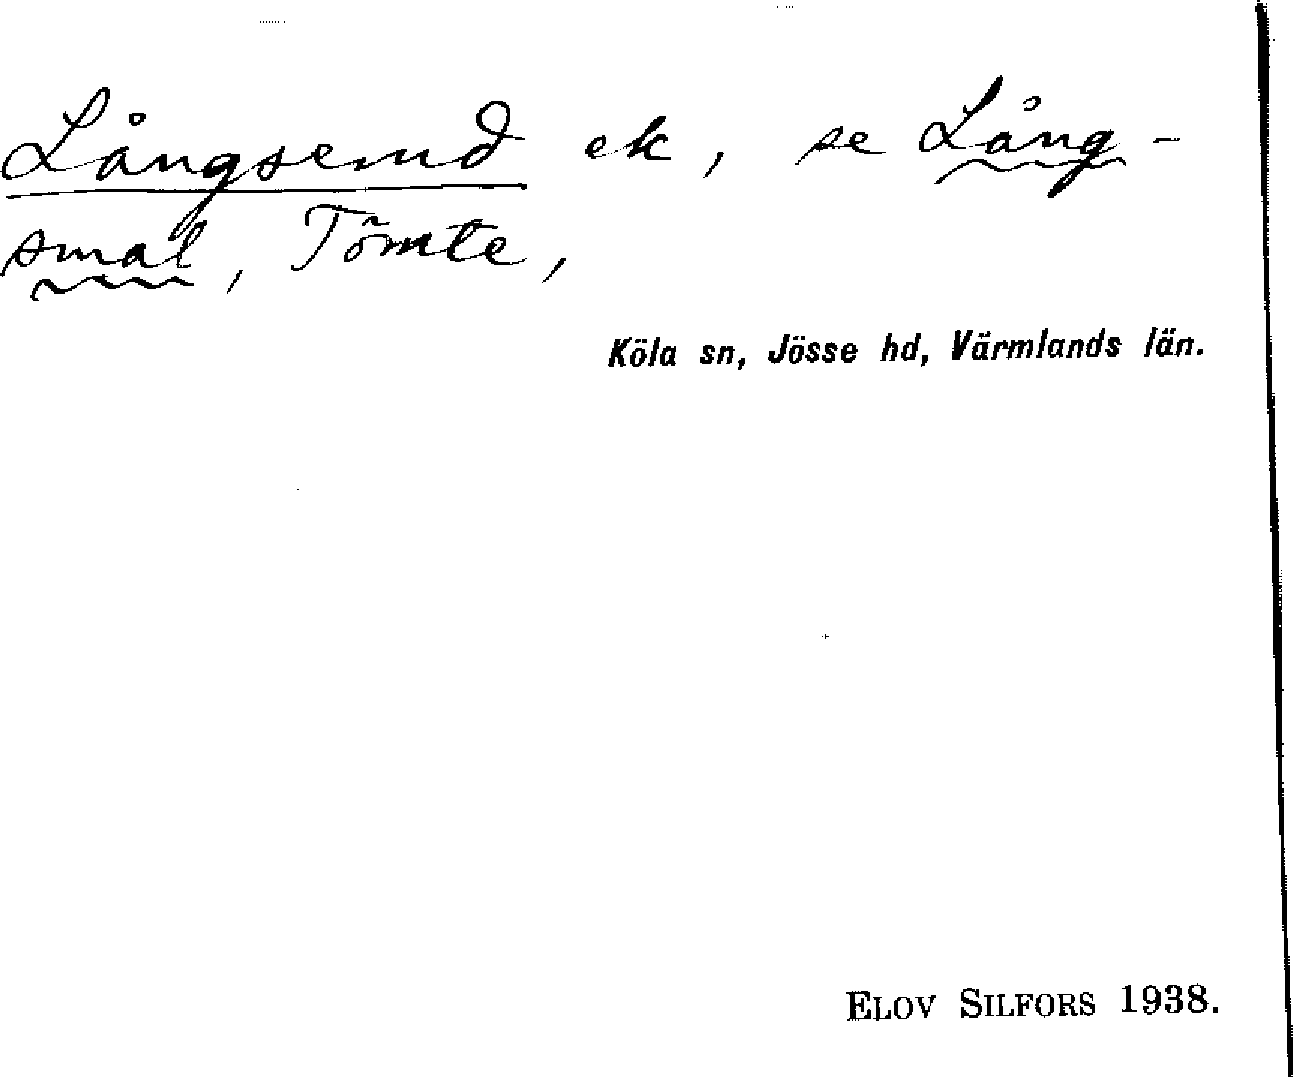 Långsemd ek, se Lång-
smal, Tömte,
Köla sn, Jösse hd, Värmlands län.
ELOV SILFORS 1938.